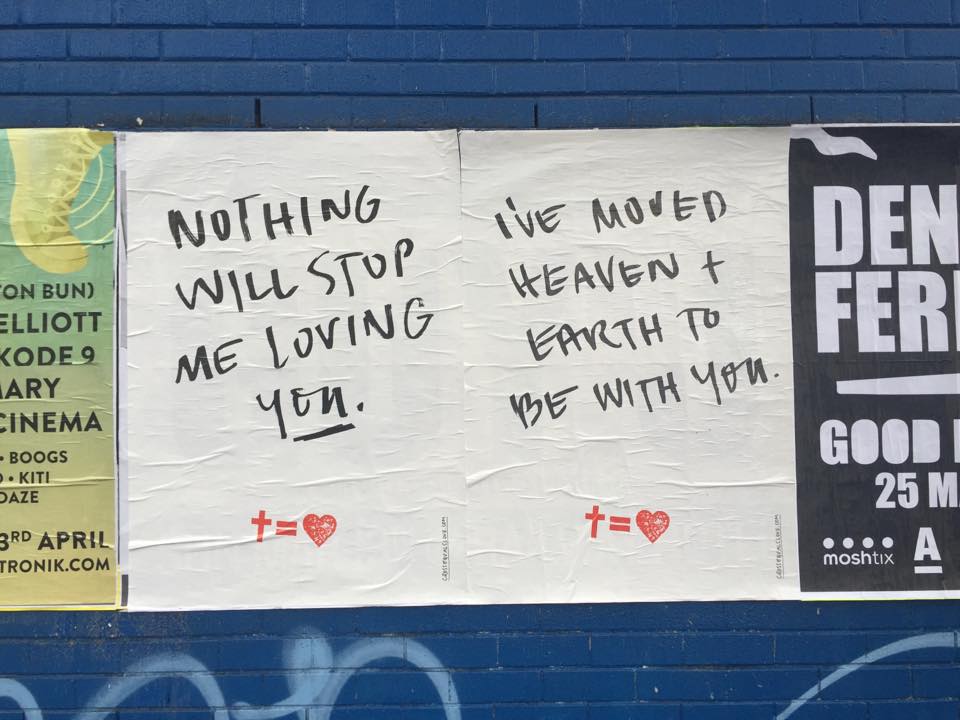 TON BUN)
ELLIOTT
KODE 9
MARY
CINEMA
• BOOGS
• KITI
OAZE
3RD APRIL
TRONIK.COM
NOTHING
WILL STOP
ME LOVING
YOU.
†=
CROSSEQUALSLOVE.COM
I'VE MOVED
HEAVEN +
EARTH TO
BE WITH YOU.
†=
CROSSEQUALSLOVE.COM
DEN
FER
GOOD
25 M
moshtix
A